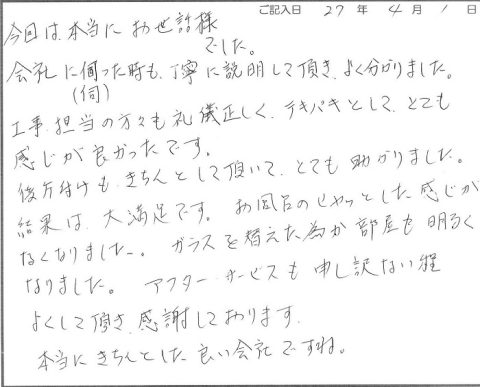 ご記入日 27 年 4 月 1 日
今回は本当にお世話様
でした。
会社に伺った時も、丁寧に説明して頂き、よく分かりました。
(伺)
工事担当の方々も礼儀正しく、テキパキとして、とても
感じが良かったです。
後片付けも、きちんとして頂いて、とても助かりました。
結果は、大満足です。お風呂のひやっとした感じが
なくなりました。ガラスを替えた為か部屋も明るく
なりました。アフターサービスも申し訳ない程
よくして頂き、感謝しております。
本当にきちんとした良い会社ですね。